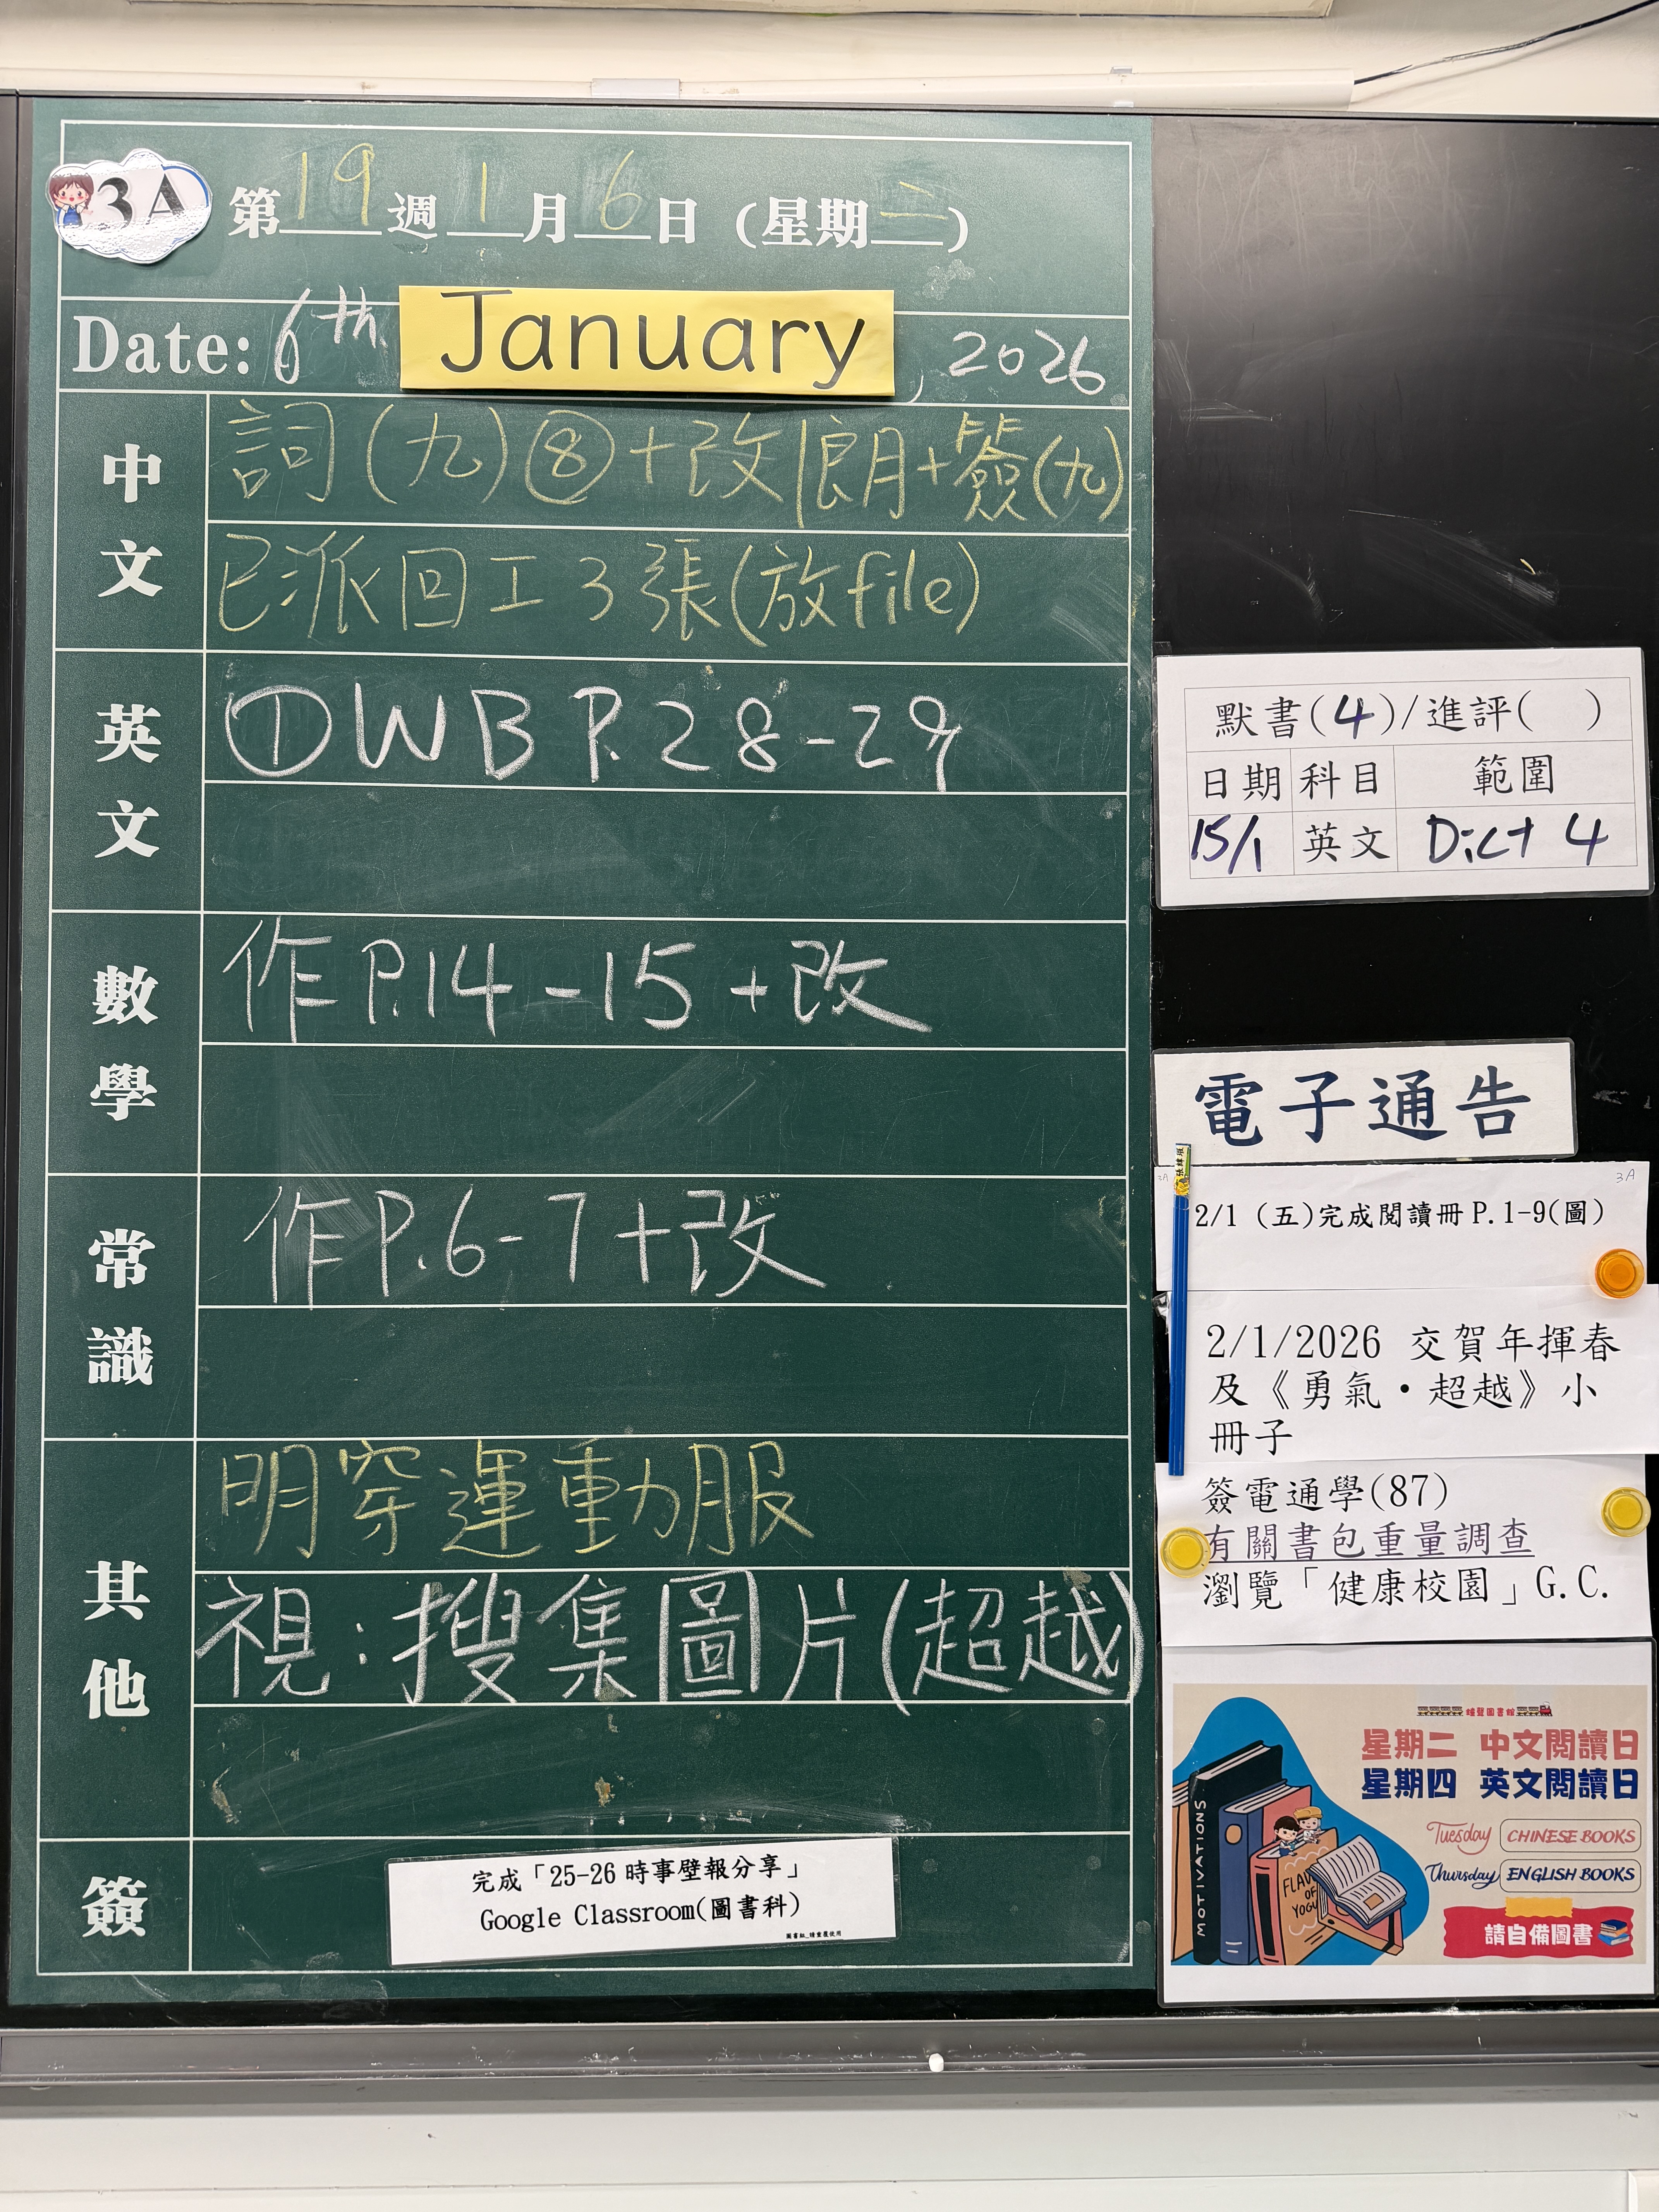 3A 第19週1月6日(星期二)
Date: 6th January, 2026
中文
詞(九)⑧+改朗+簽(九)
已派回工3張(放file)
英文
①WB P.28-29
數學
作P.14-15+改
常識
作P.6-7+改
其他
明穿運動服
視:搜集圖片(超越)
簽
完成「25-26時事壁報分享」
Google Classroom(圖書科)
默書(4)/進評( )
日期 科目 範圍
15/1 英文 Dict 4
電子通告
3A 3A
2/1 (五)完成閱讀冊P.1-9(圖)
2/1/2026 交賀年揮春
及《勇氣・超越》小
冊子
簽電通學(87)
有關書包重量調查
瀏覽「健康校園」G.C.
星期二 中文閱讀日
星期四 英文閱讀日
Tuesday CHINESE BOOKS
Thursday ENGLISH BOOKS
請自備圖書
MOTIVATIONS
FLAV
OF
YOGU